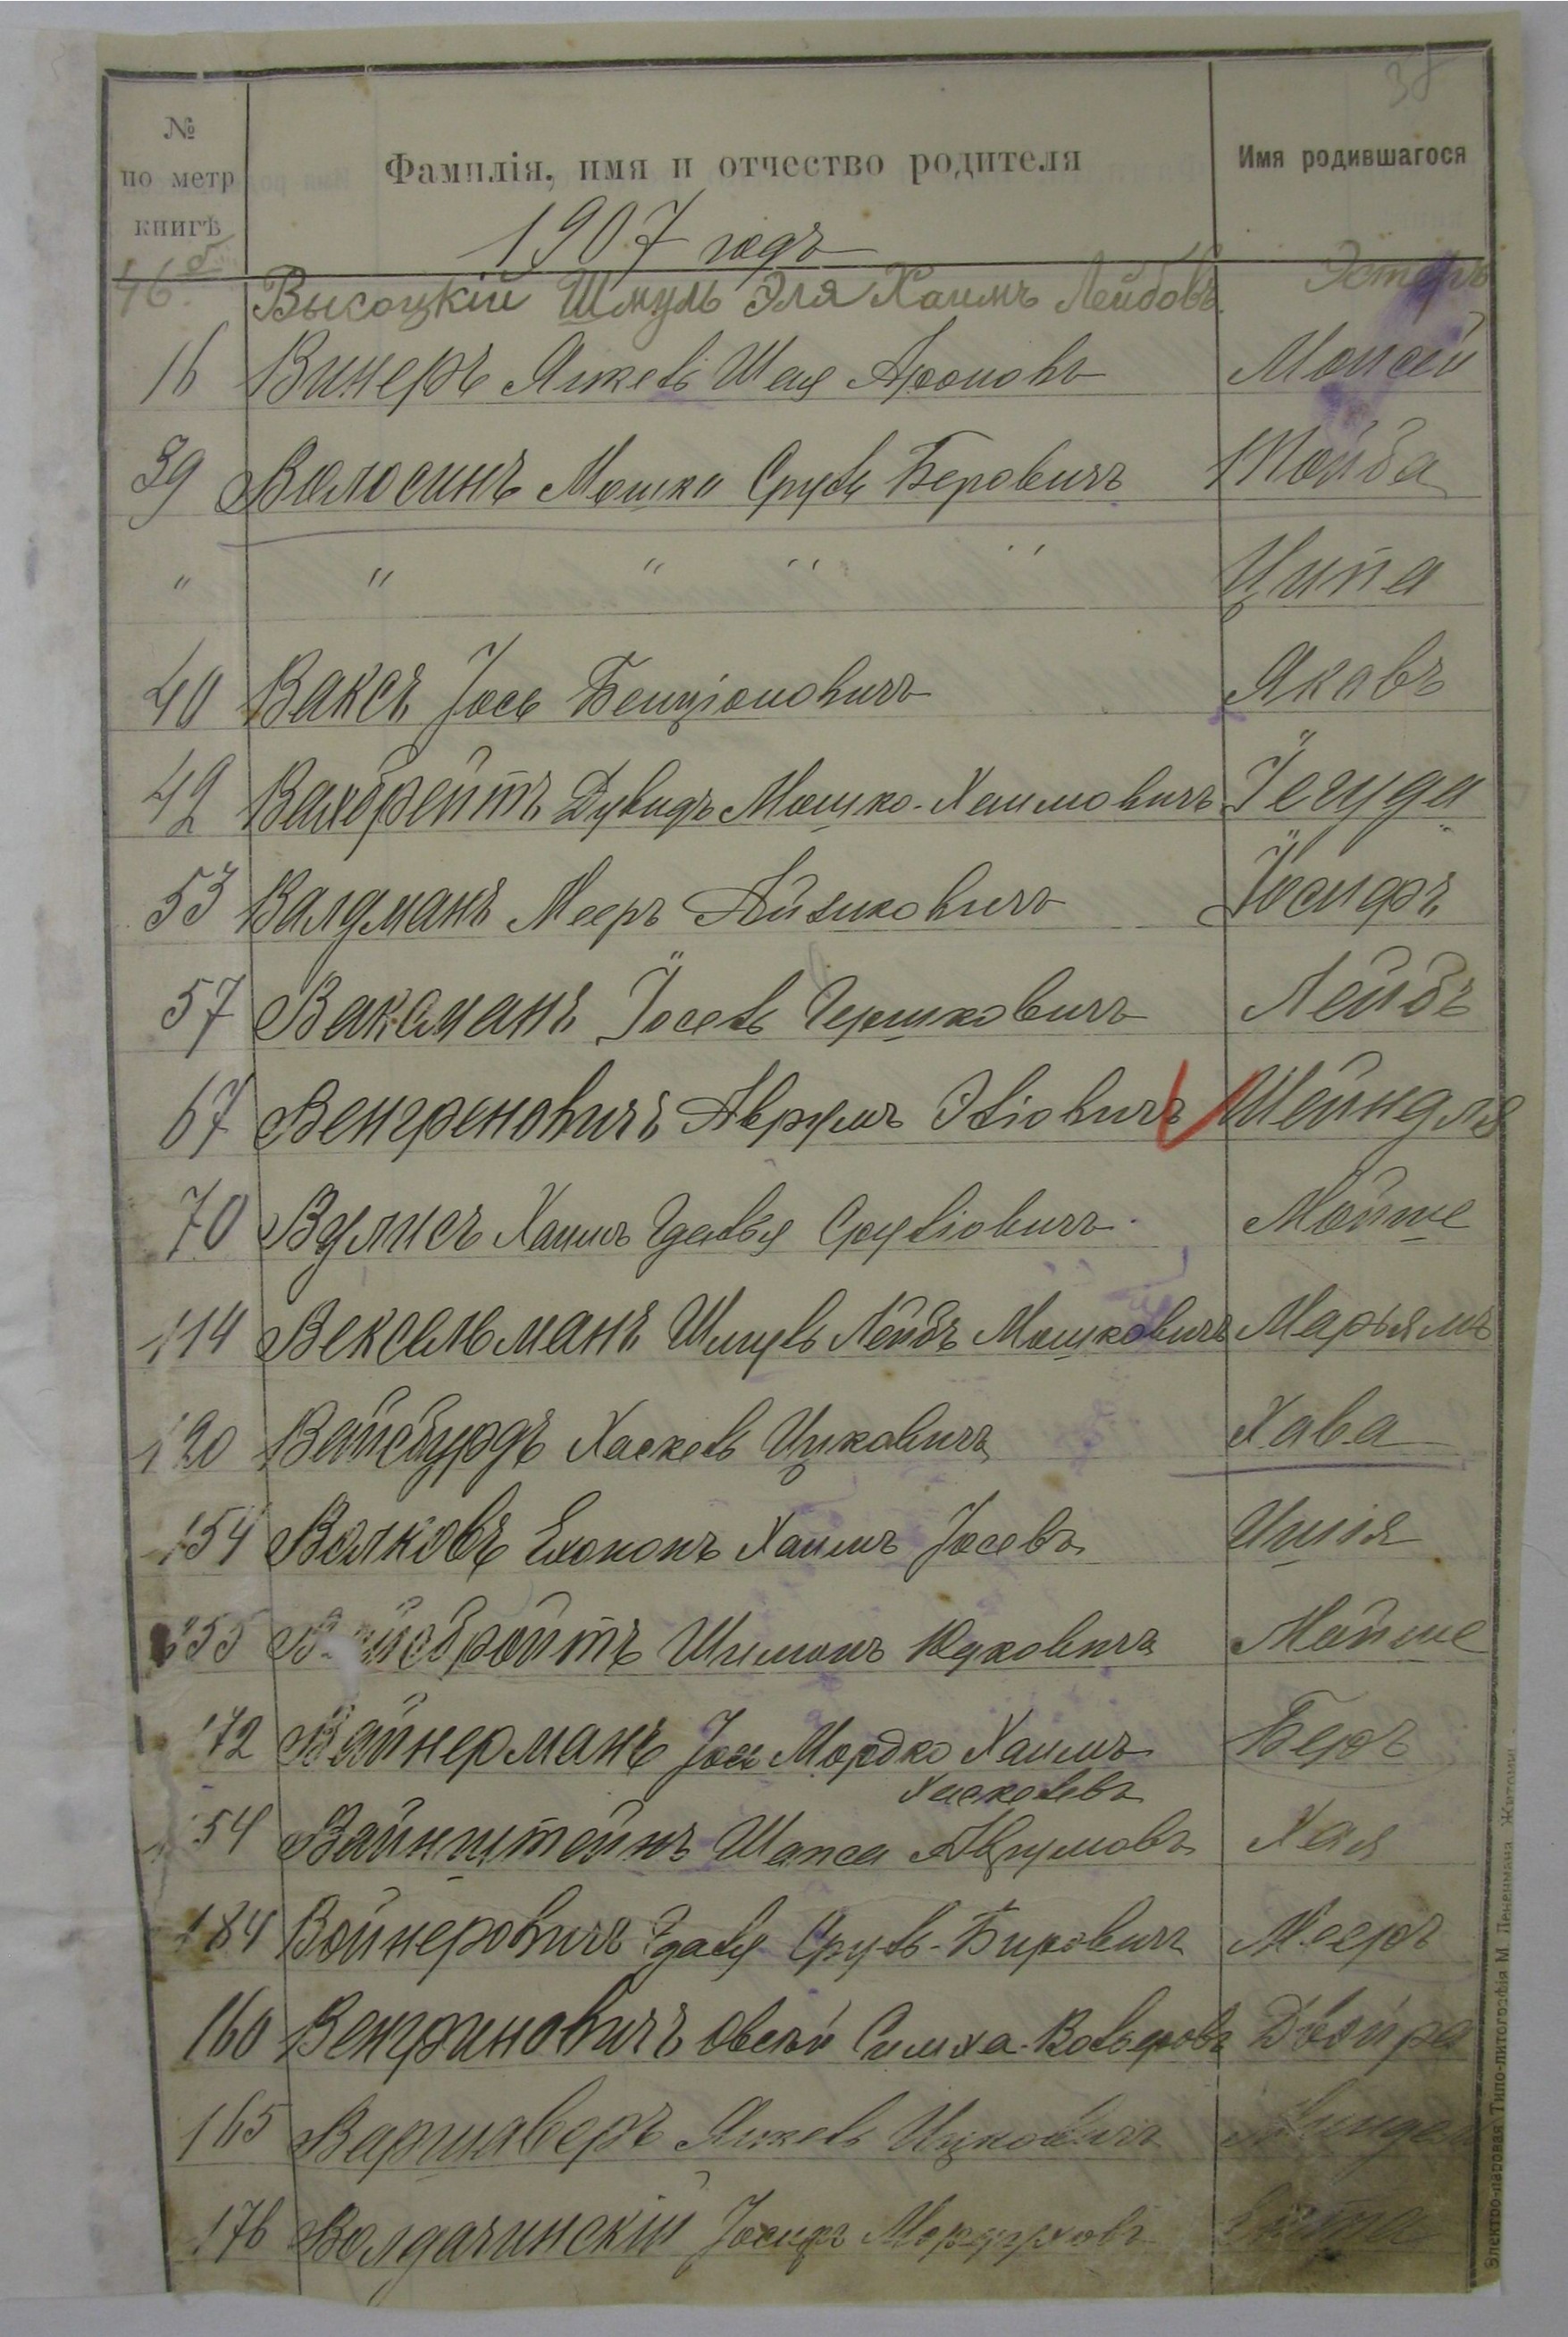 38
№ по метр книгѣ Фамилія, имя и отчество родителя Имя родившагося
1907 годъ
46 б Высоцкій Шмуль Эля Хаимъ Лейбовъ Эстеръ
16 Винеръ Янкель Шая Ароновъ Моисей
39 Волосинъ Мошко Сруль Беровичъ Тойба
" " " " " Ципа
40 Ваксъ Іось Бенціоновичъ Яковъ
42 Дувидъ Мошко-Хаимовичъ Іегуда
53 Валдманъ Мееръ Айзиковичъ Іосифъ
57 Ваксманъ Іосель Гершковичъ Лейбъ
67 Венгреновичъ Аврумъ Эліовичъ Шейндля
70 Вулисъ Хаимъ Гдалья Сруліовичъ Мойше
114 Вексельманъ Шмуль Лейбъ Мошковичъ Марьямъ
120 Вайсбурдъ Хаскель Ицковичъ Хава
154 Волковъ Ехононъ Хаимъ Іосевъ
155 Шимонъ Юдковичъ Мойше
172 Вайнерманъ Іось Мордко Хаимъ Беръ
Хаскелевъ
154 Вайнштейнъ Шапса Аврумовъ Хая
184 Войнеровичъ Гдаля Сруль-Бировичъ Мееръ
160 Венгриновичъ Овсей Симха-Вольфовъ Двойра
165 Варшаверъ Янкель Ицковичъ
176 Волдачинскій Іосифъ
Электро-паровая Типо-литографія М. Дененмана Житомир